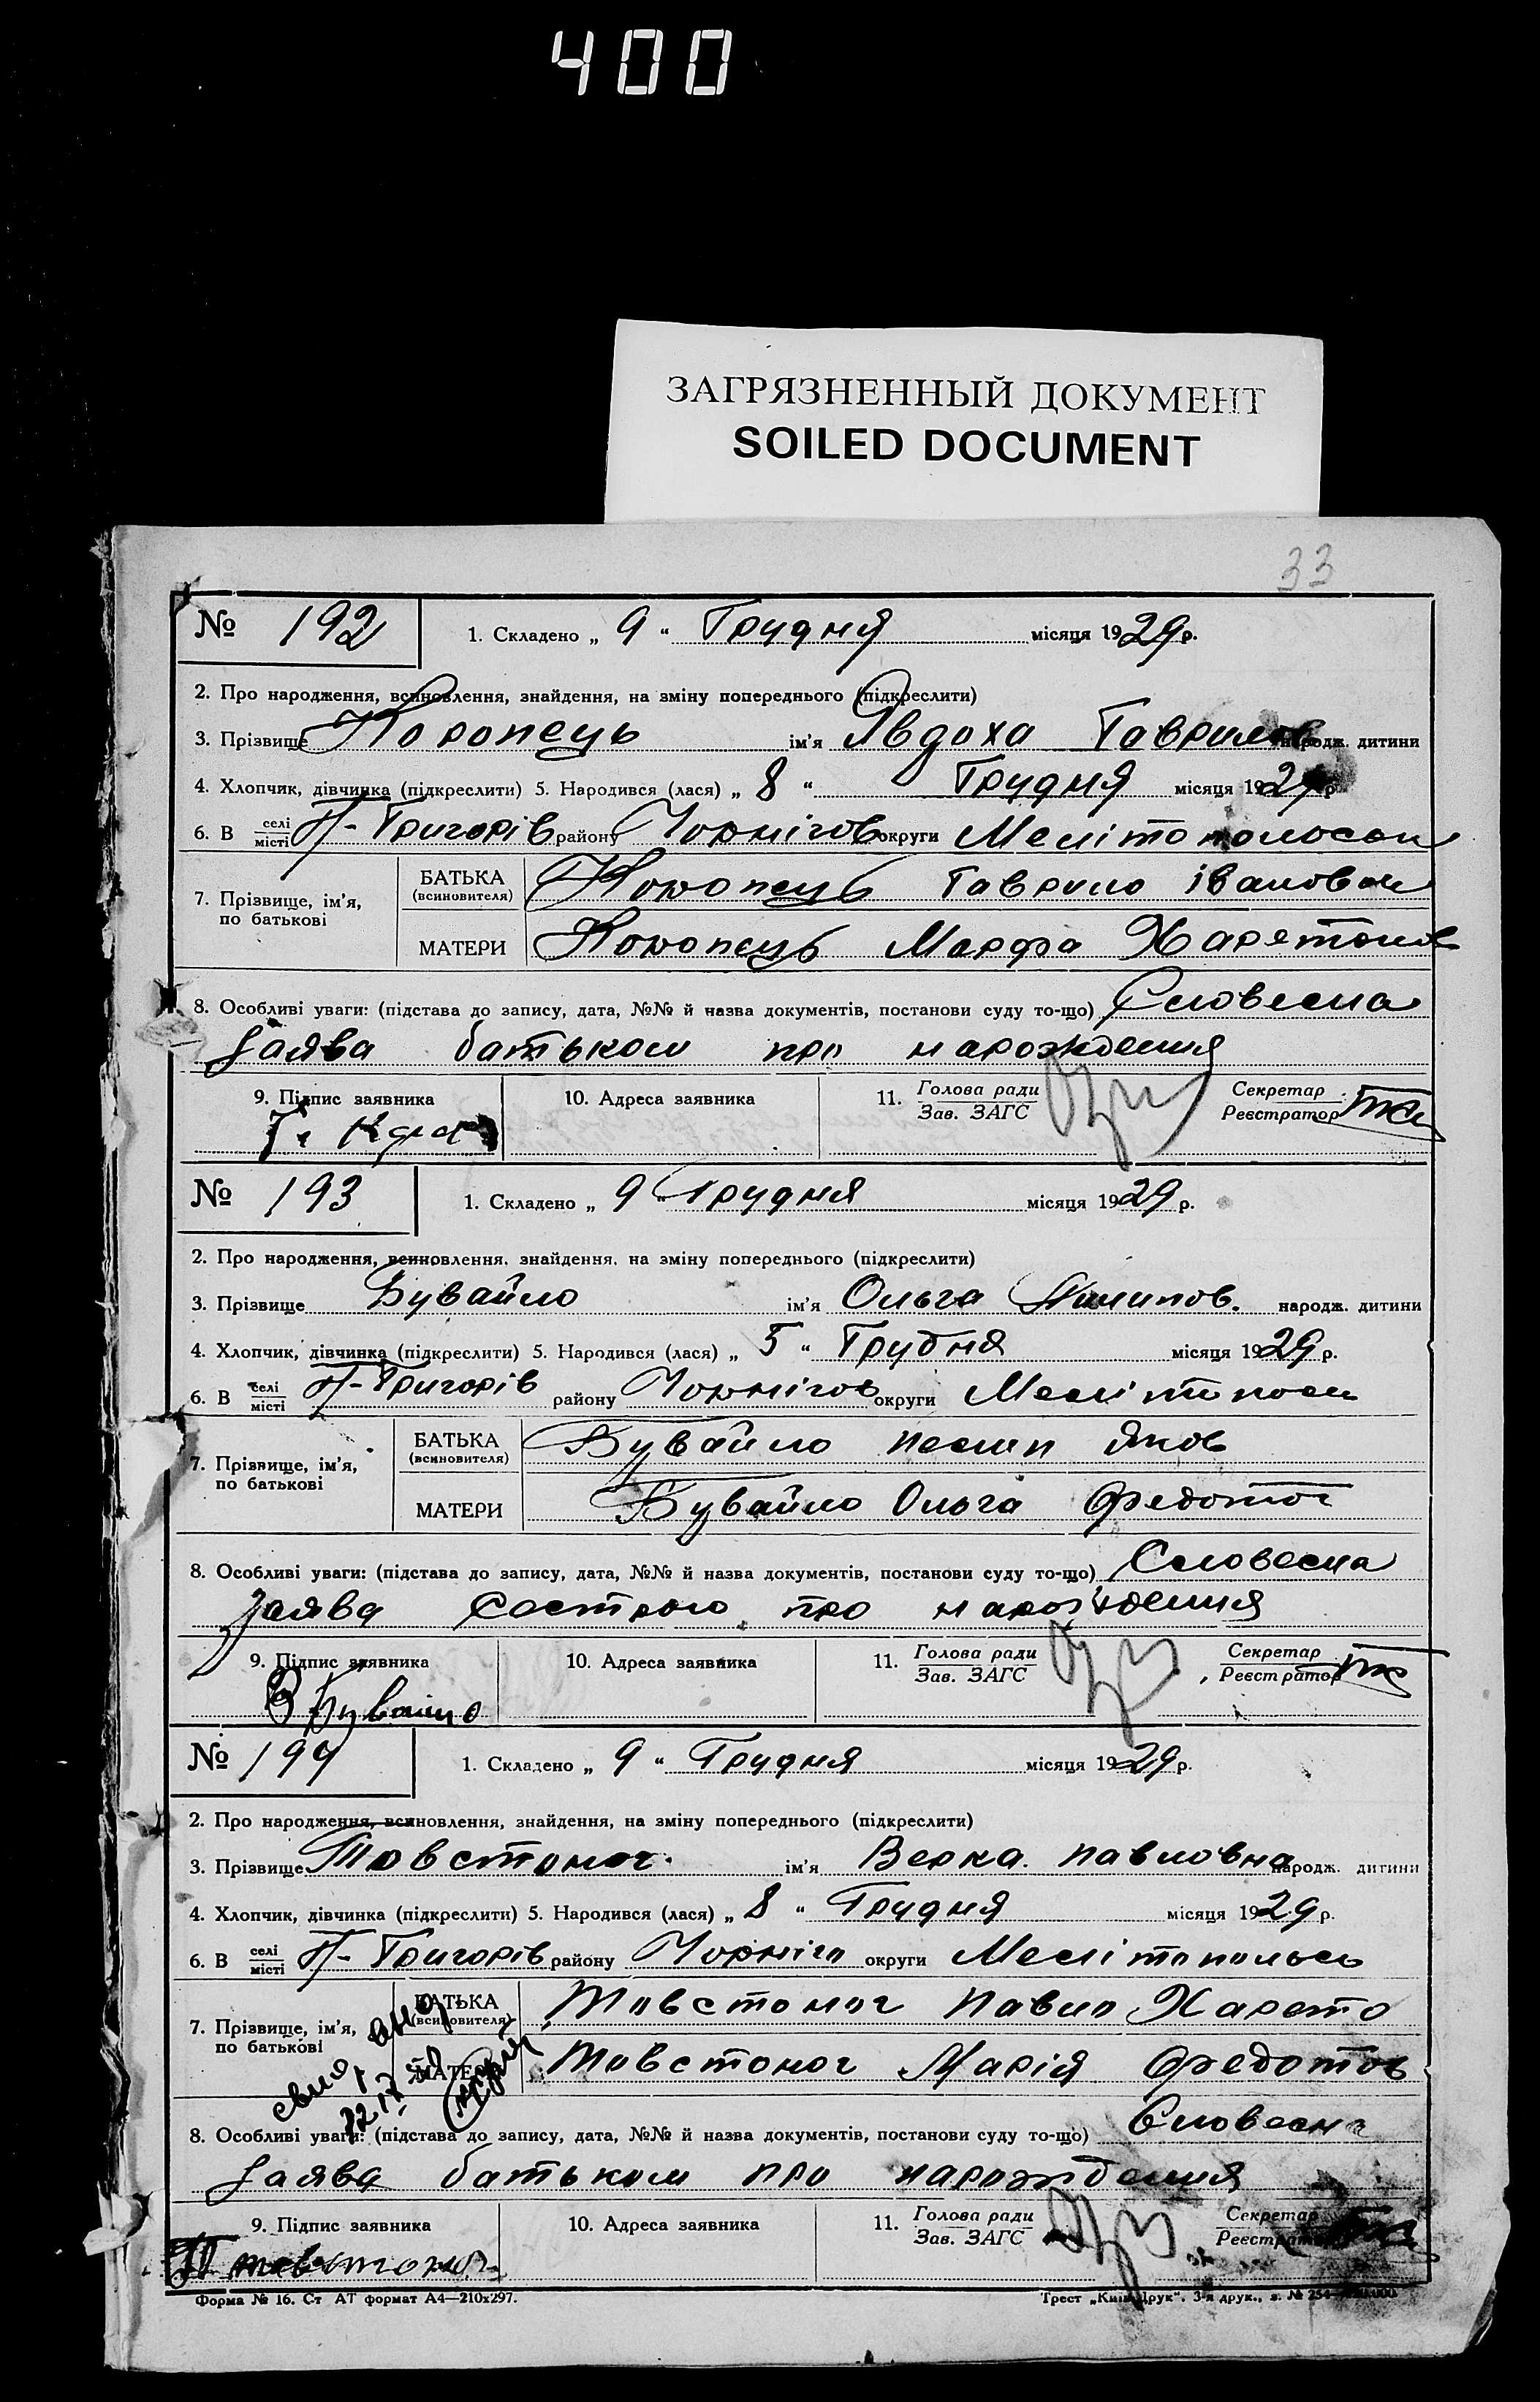 400
ЗАГРЯЗНЕННЫЙ ДОКУМЕНТ
SOILED DOCUMENT
33
№ 192 1. Складено „ 9 “ Грудня місяця 1929 р.
2. Про народження, всиновлення, знайдення, на зміну попереднього (підкреслити)
3. Прізвище Коропець ім'я Явдоха Гаврилов народж. дитини
4. Хлопчик, дівчинка (підкреслити) 5. Народився (лася) „ 8 “ Грудня місяця 1929 р.
6. В селі місті П-Григорів району Чорнігов округи
7. Прізвище, ім'я, по батькові БАТЬКА (всиновителя) Коропець Гаврило Івановач
МАТЕРИ Коропець Марфа Харетонов
8. Особливі уваги: (підстава до запису, дата, №№ й назва документів, постанови суду то-що) Словесна
Заява батьком про народждения
9. Підпис заявника 10. Адреса заявника 11. Голова ради Зав. ЗАГС Секретар Реєстратор
№ 193 1. Складено „ 9 “ Грудня місяця 1929 р.
2. Про народження, всиновлення, знайдення, на зміну попереднього (підкреслити)
3. Прізвище Бувайло ім'я Ольга Пилипов. народж. дитини
4. Хлопчик, дівчинка (підкреслити) 5. Народився (лася) „ 5 “ Грудня місяця 1929 р.
6. В селі місті П-Григорів району Чорнігов округи
7. Прізвище, ім'я, по батькові БАТЬКА (всиновителя) Бувайло Яков
МАТЕРИ Бувайло Ольга Федотов
8. Особливі уваги: (підстава до запису, дата, №№ й назва документів, постанови суду то-що) Словесна
Заява Сестрою про народждения
9. Підпис заявника 10. Адреса заявника 11. Голова ради Зав. ЗАГС Секретар Реєстратор
В Бувайло
№ 194 1. Складено „ 9 “ Грудня місяця 1929 р.
2. Про народження, всиновлення, знайдення, на зміну попереднього (підкреслити)
3. Прізвище Товстоног. ім'я Верка Павловна народж. дитини
4. Хлопчик, дівчинка (підкреслити) 5. Народився (лася) „ 8 “ Грудня місяця 1929 р.
6. В селі місті П-Григорів району Чорніго округи Мелітопольсь
7. Прізвище, ім'я, по батькові БАТЬКА (всиновителя) Товстоног Павло Харето
МАТЕРИ Товстоног Марія Федотов
8. Особливі уваги: (підстава до запису, дата, №№ й назва документів, постанови суду то-що) Словесна
Заява батьком про народждения
9. Підпис заявника 10. Адреса заявника 11. Голова ради Зав. ЗАГС Секретар Реєстратор
П товстоног
Форма № 16. Ст АТ формат А4—210х297. Трест „Київ-Друк“, 3-я друк., з. № 254